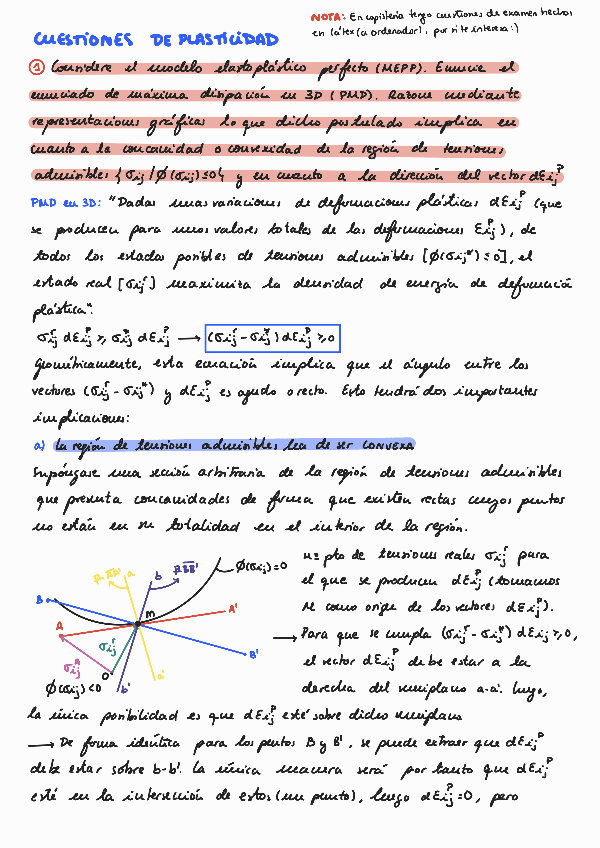 NOTA: En copistería tengo cuestiones de examen hechas
en látex (a ordenador), por si te interesa :)
CUESTIONES DE PLASTICIDAD
① Considere el modelo elastoplástico perfecto (MEPP). Enuncie el
enunciado de máxima disipación en 3D (PMD). Razone mediante
representaciones gráficas lo que dicho postulado implica en
cuanto a la concavidad o convexidad de la región de tensiones
admisibles {σij / Φ(σij) ≤ 0} y en cuanto a la dirección del vector dεijᵖ
PMD en 3D: "Dadas unas variaciones de deformaciones plásticas dεijᵖ (que
se producen para unos valores totales de las deformaciones εijᵖ), de
todos los estados posibles de tensiones admisibles [Φ(σij*) ≤ 0], el
estado real [σijʳ] maximiza la densidad de energía de deformación
plástica".
σijʳ dεijᵖ ≥ σij* dεijᵖ → (σijʳ - σij*) dεijᵖ ≥ 0
Geométricamente, esta ecuación implica que el ángulo entre los
vectores (σijʳ - σij*) y dεijᵖ es agudo o recto. Esto tendrá dos importantes
implicaciones:
a) La región de tensiones admisibles ha de ser CONVEXA
Supóngase una sección arbitraria de la región de tensiones admisibles
que presenta concavidades de forma que existen rectas cuyos puntos
no están en su totalidad en el interior de la región.
⊥ AA' a b ⊥ BB' Φ(σij)=0
B M A'
A σijʳ
σij* O B'
Φ(σij)<0 b' a'
M ≡ pto de tensiones reales σijʳ para
el que se producen dεijᵖ (tomamos
M como origen de los vectores dεijᵖ).
→ Para que se cumpla (σijʳ - σij*) dεij ≥ 0,
el vector dεijᵖ debe estar a la
derecha del semiplano a-a'. Luego,
la única posibilidad es que dεijᵖ esté sobre dicho semiplano
→ De forma idéntica para los puntos B y B', se puede extraer que dεijᵖ
debe estar sobre b-b'. La única manera será por tanto que dεijᵖ
esté en la intersección de estos (un punto), luego dεijᵖ = 0, pero